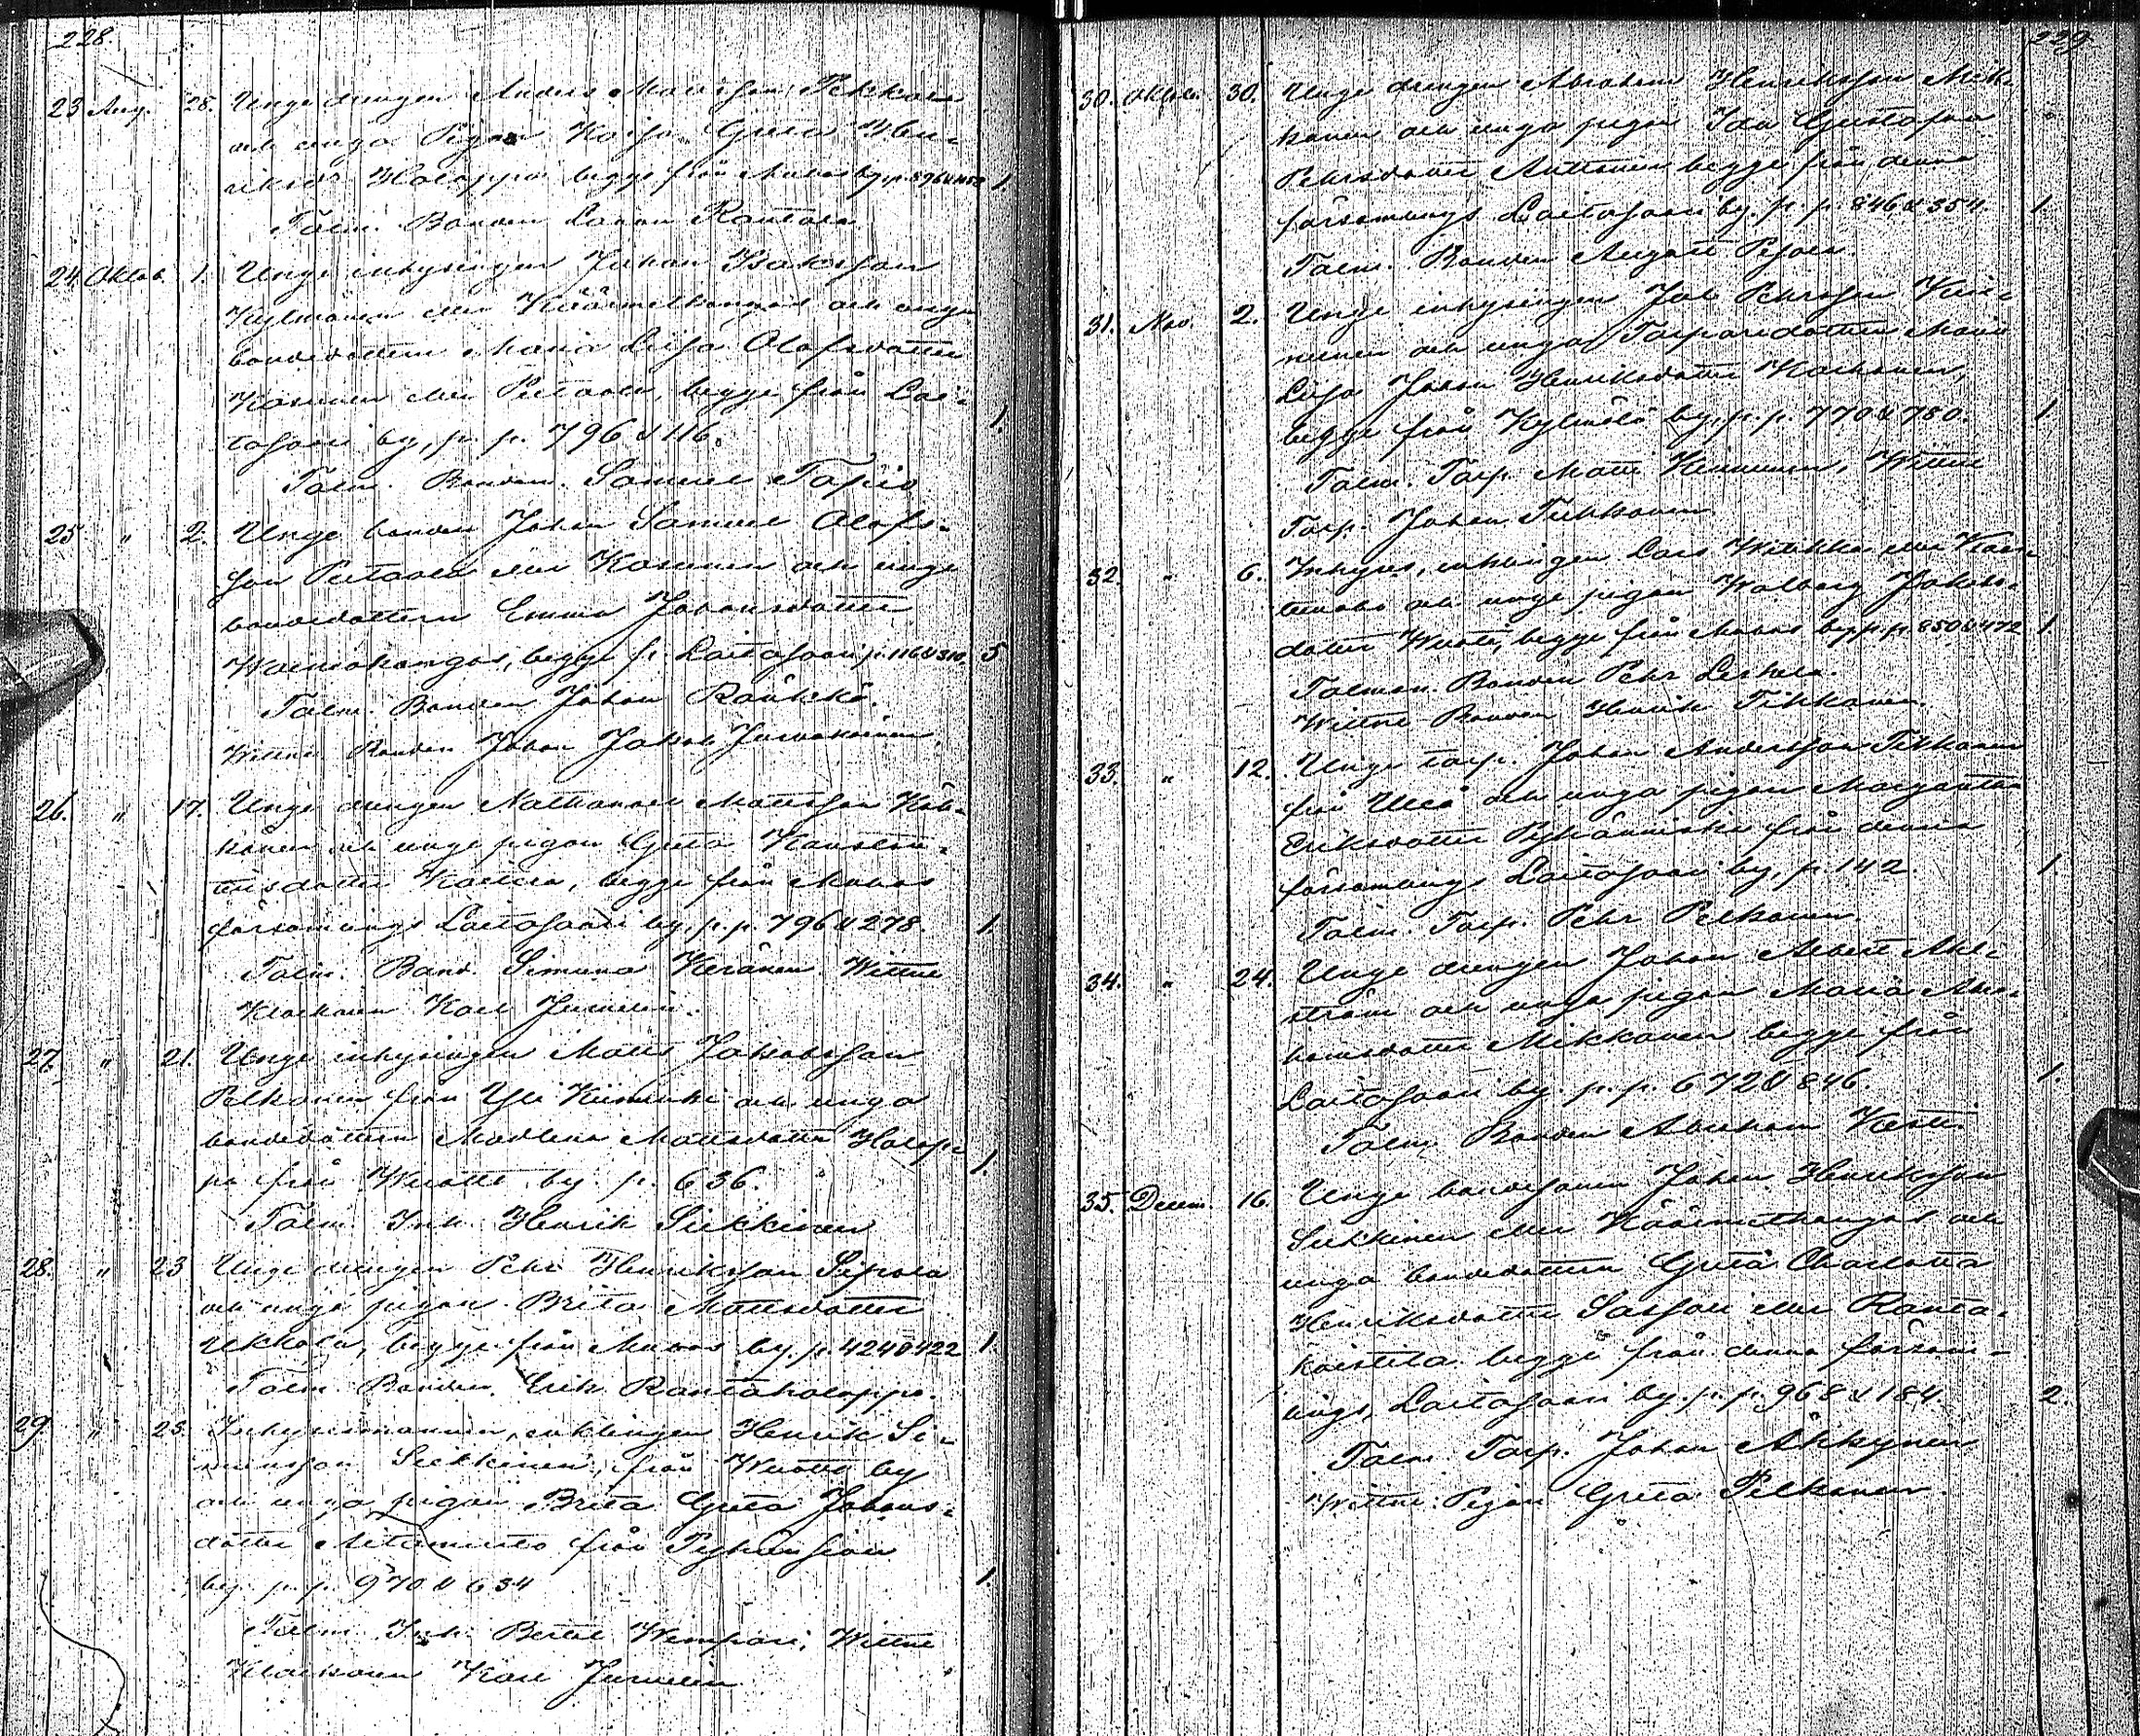 228.
23 Aug. 28. Unge drengen Anders Mattsson Pekkala
och unga Pigan Kaisa Greta Hen-
riksdr Holappa begge från Muhos by p. 896 & 1052 1
Talm. Bonden Rautala
24. Oktob. 1. Unge inhysingen Johan Isaksson
Kylmänen eller Käärmelkangas och unga
bondedottern Maria Liisa Olofsdotter
Kosunen eller Pertaola, begge från Lai-
tasaari by, p. p. 796 & 116. 1.
Talm. Bonden Samuel Tapio
25 " 2. Unge bonden Johan Samuel Olofs-
son Pertaola eller Kosunen och unga
bondedottern Emma Johansdotter
Walmiokangas, begge fr. Laitasaari p. 116 & 310. 5
Talm. Bonden Johan Räükkö.
Wittne Bonden Johan Jakob
26. " 17. Unge drengen Nathanael Mattsson Käh-
könen och unga pigan Greta Konstan-
tinsdotter begge från Muhos
församlings Laitasaari by, p. p. 796 & 278. 1.
Talm. Bond. Simuna Keränen. Wittne
Klockaren Karl Jurvelin.
27. " 21. Unge inhysingen Matts Jakobsson
Pelkonen från Yli Kiiminki och unga
bondedottern Madlena Mattsdotter Holap-
pa från Wuotto by. p. 636. 1.
Talm. Inh. Henrik Siekkinen
28. " 23 Unge drengen Pehr Henriksson Sipola
och unga pigan Brita Mattsdotter
Ukkola, begge från Muhos by. p. 424 & 422 1.
Talm. Bonden Erik Rantaholappa.
29. " 23. Inhysesmannen, enklingen Henrik Si-
monsson Siekkinen, från Wuotto by
och unga pigan Brita Greta Johans-
dotter från
by p. p. 970 & 634 1.
Talm. Inh. Bertel Wimpari, Wittne
Klockaren Karl Jurvelin
229.
30. Oktob. 30. Unge drengen Abraham Henriksson Mik-
konen och unga pigan Ida Gustafva
Pehrsdotter Anttonen begge från denna
församlings Laitasaari by. p. p. 846 & 354. 1
Talm. Bonden August Pesola.
31. Nov. 2. Unge inhysingen Job Pehrsson Kin-
nunen och unga Torparedottern Maria
Liisa Johan Henriksdotter Karhonen,
begge från Kylmälä by, p. p. 770 & 780. 1
Talm. Torp. Matti Kinnunen, Wittne
Torp. Johan Tikkanen
32. " 6. Inhyses, enklingen Lars
och unga pigan Walborg Jakobs-
dotter Wuoti, begge från Muhos by p. p. 850 & 472 1
Talman Bonden Pehr Leskelä.
Wittne Bonden Henrik Tikkanen.
33. " 12. Unge torp. Johan Andersson Tikkanen
från Uleå och unga pigan Margareta
Eriksdotter från denna
församlings Laitasaari by, p. 142. 1
Talm. Torp. Pehr Pelkonen.
34. " 24. Unge drengen Johan Albert Ahl-
ström och unga pigan Maria Abra-
hamsdotter Mikkonen begge från
Laitasaari by. p. p. 672 & 846. 1.
Talm. Bonden Abraham Kesti
35. Decem. 16. Unge bondesonen Johan Henriksson
Siekkinen eller Käärmelkangas och
unga bondedottern Greta Charlotta
Henriksdotter Sassali eller Ranta-
kaistila begge från denna försam-
lings, Laitasaari by. p. p. 968 & 184. 2.
Talm. Torp. Johan Ähkynen
Wittne: Pigan Greta Pelkonen.